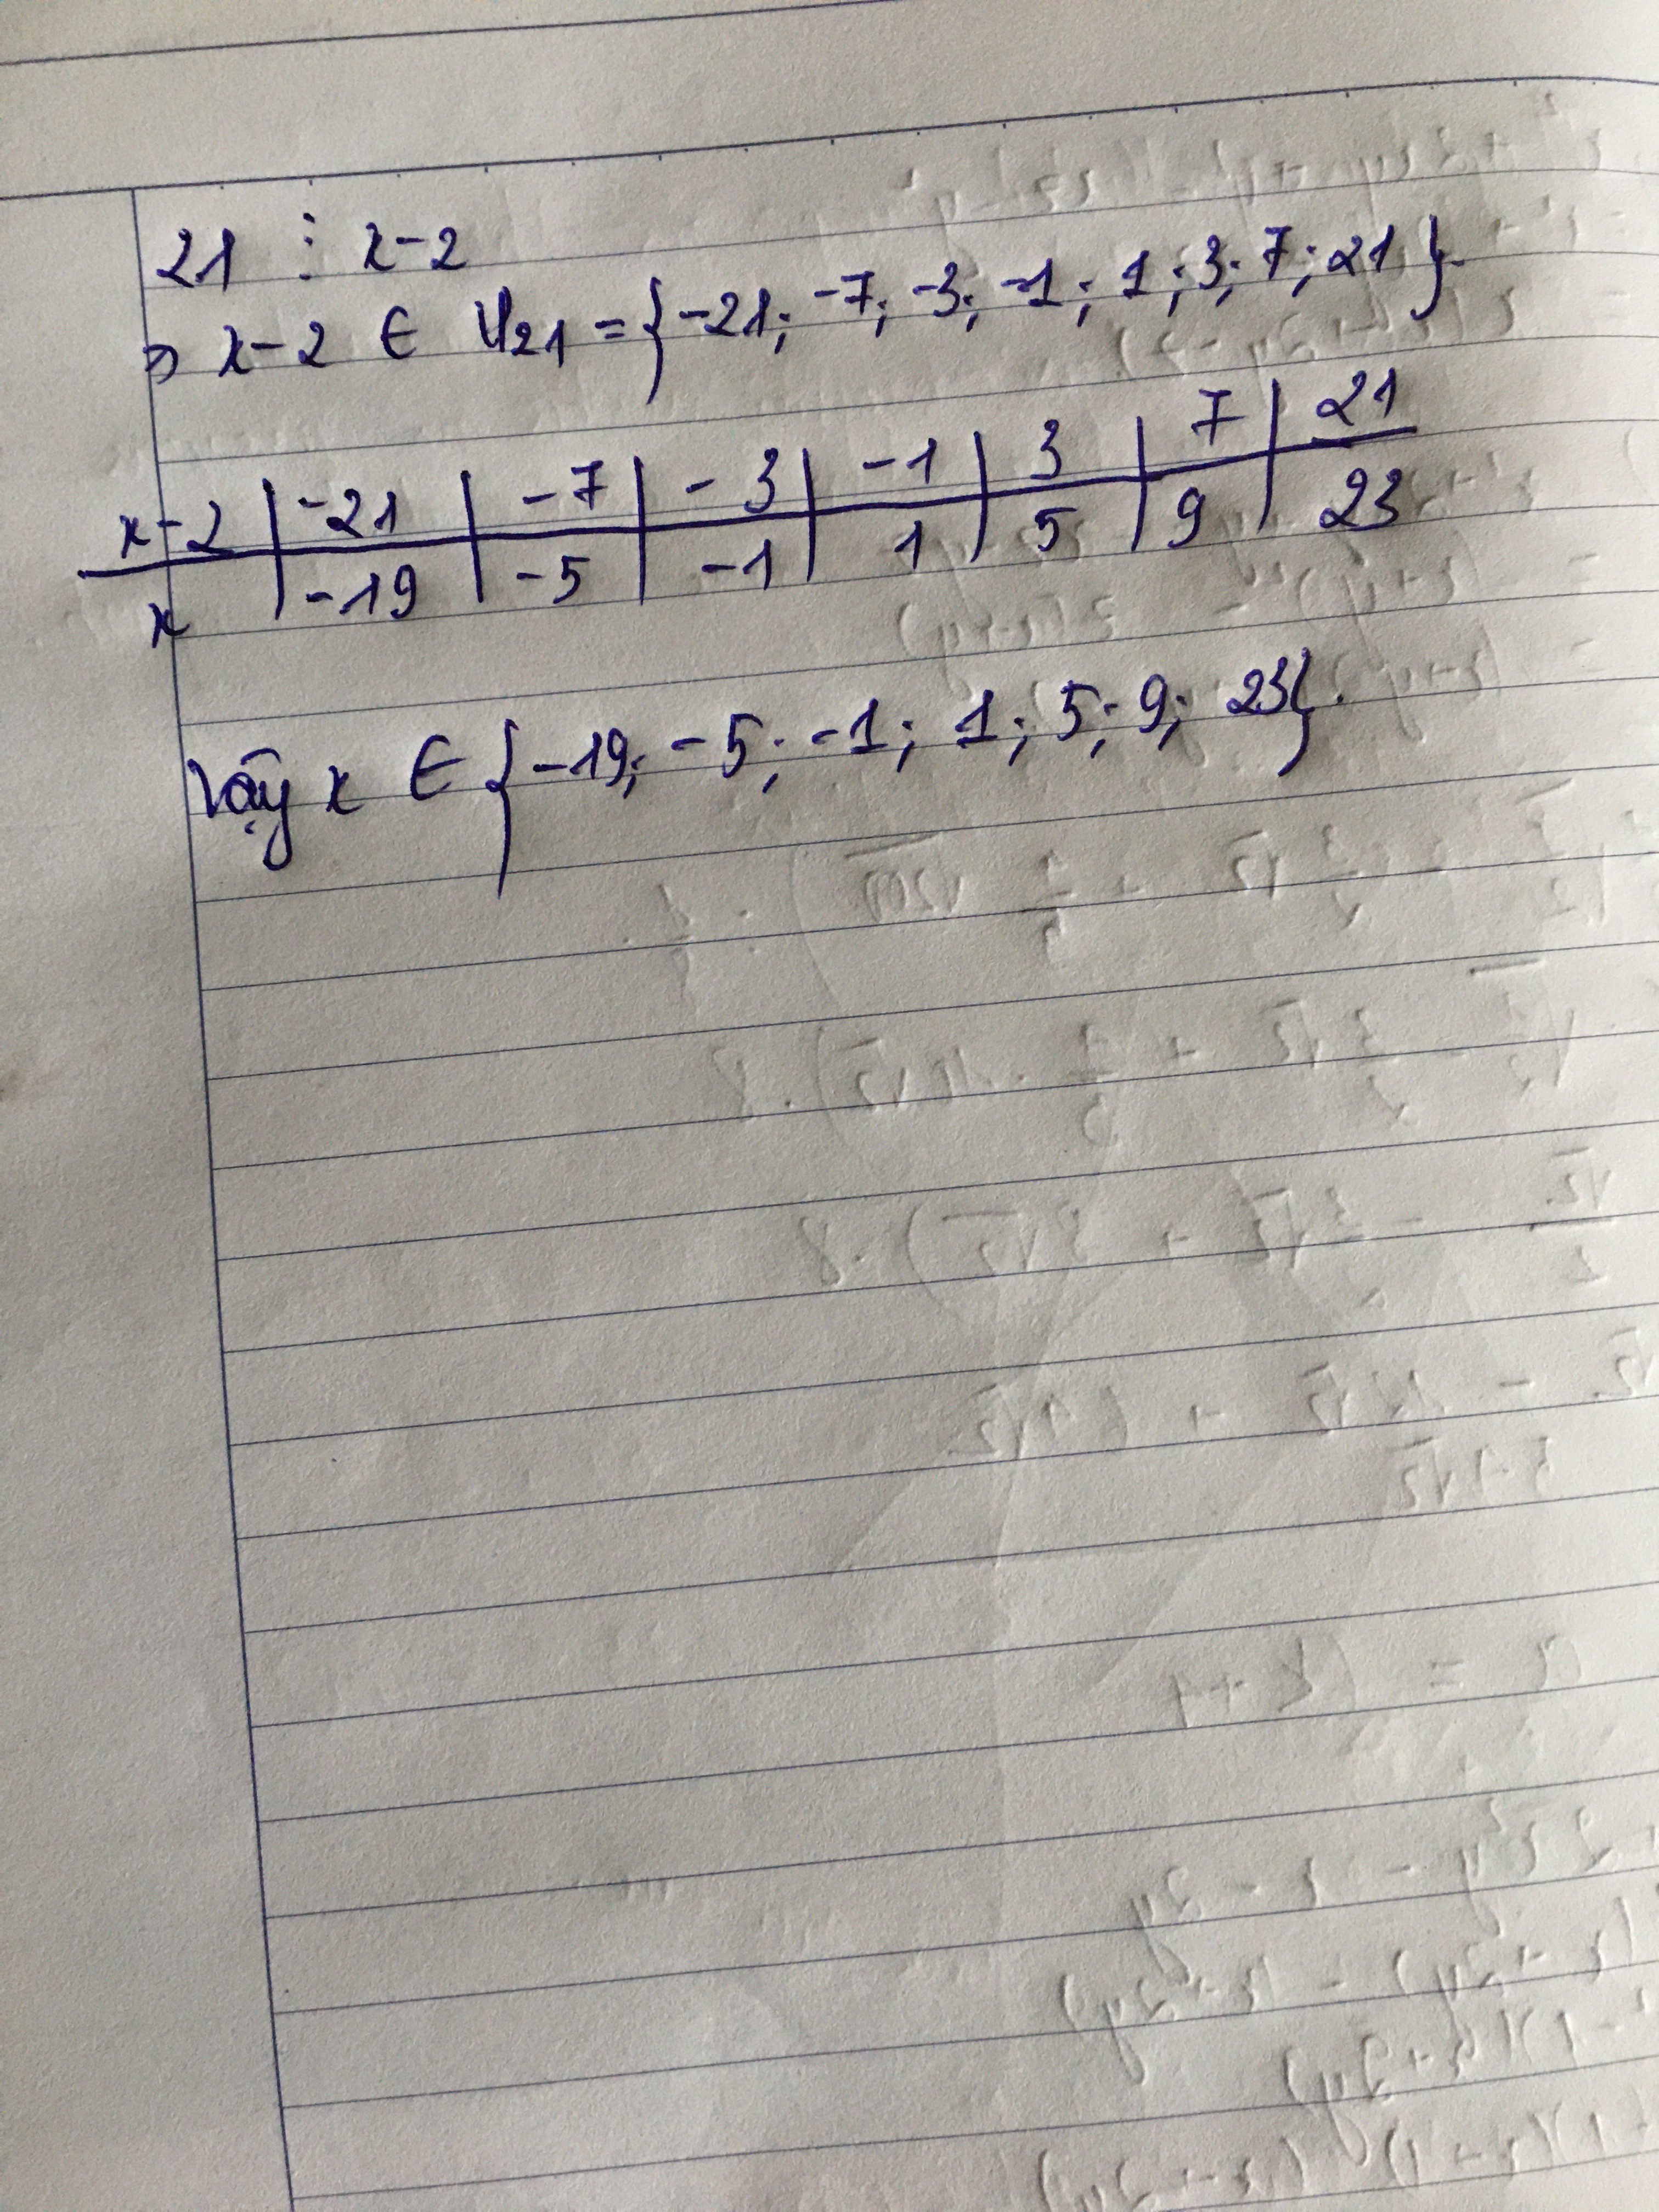 21 ⋮ x-2
⇒ x-2 ∈ Ư21 = {-21; -7; -3; -1; 1; 3; 7; 21}.
x-2 | -21 | -7 | -3 | -1 | 3 | 7 | 21
x | -19 | -5 | -1 | 1 | 5 | 9 | 23
Vậy x ∈ {-19; -5; -1; 1; 5; 9; 23}.